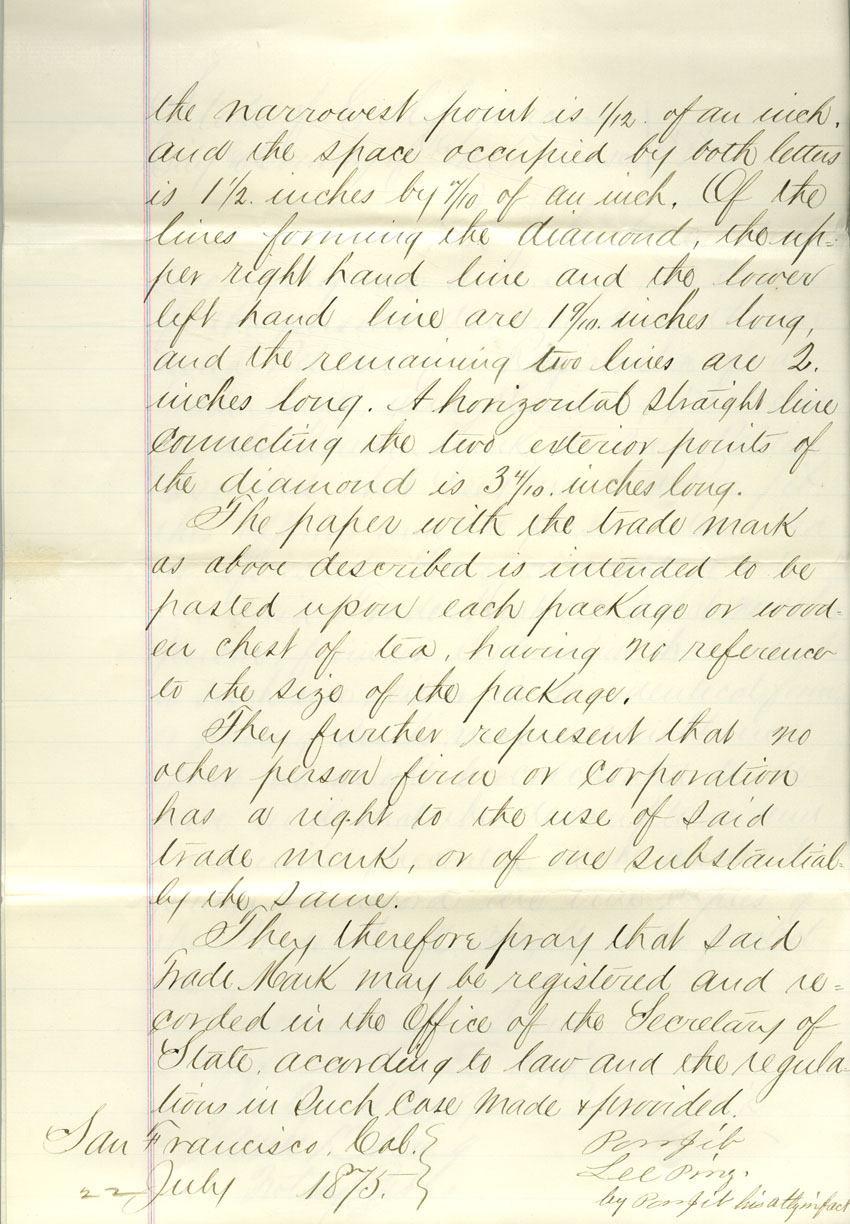 the narrowest point is 1/12. of an inch,
and the space occupied by both letters
is 1 1/2. inches by 7/10 of an inch. Of the
lines forming the diamond, the up-
per right hand line and the lower
left hand line are 1 9/10. inches long,
and the remaining two lines are 2.
inches long. A horizontal straight line
connecting the two exterior points of
the diamond is 3 4/10. inches long.
The paper with the trade mark
as above described is intended to be
pasted upon each package or wood-
en chest of tea, having no reference
to the size of the package.
They further represent that no
other person firm or corporation
has a right to the use of said
trade mark, or of one substantial-
ly the same.
They therefore pray that said
Trade Mark may be registered and re-
corded in the Office of the Secretary of
State, according to law and the regula-
tions in such case made & provided.
San Francisco, Cal.
22 July 1875.
Lee Ping.
by his atty in fact